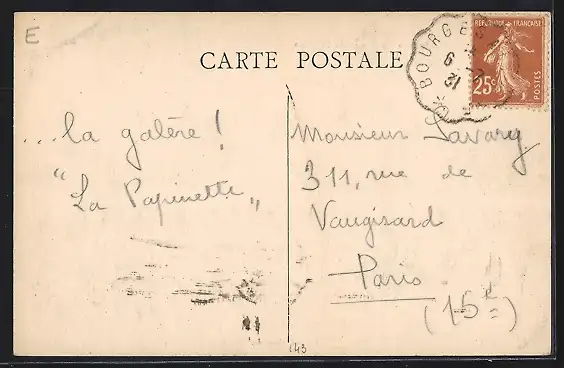 E
CARTE POSTALE
BOURGES
9
12
REPUBLIQUE FRANÇAISE
25c
POSTES
...la galère !
"La Papinette"
Monsieur Savary
311, rue de
Vaugirard
Paris
(15e)
143